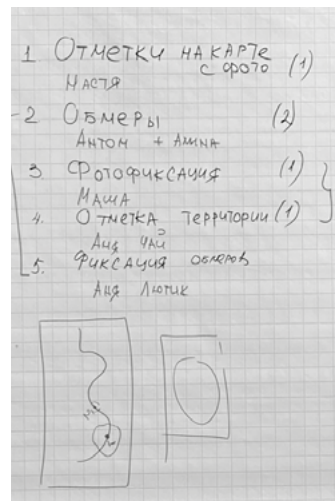 1 Отметки на карте
с фото (1)
Настя
2 Обмеры (2)
Антон + Амина
3. Фотофиксация (1)
Маша
4. Отметка территории (1)
Аня Чай
5. Фиксация обмеров
Аня Лютик